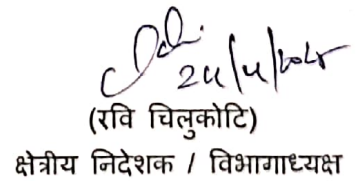 24/4/2025
(रवि चिलुकोटि)
क्षेत्रीय निदेशक / विभागाध्यक्ष